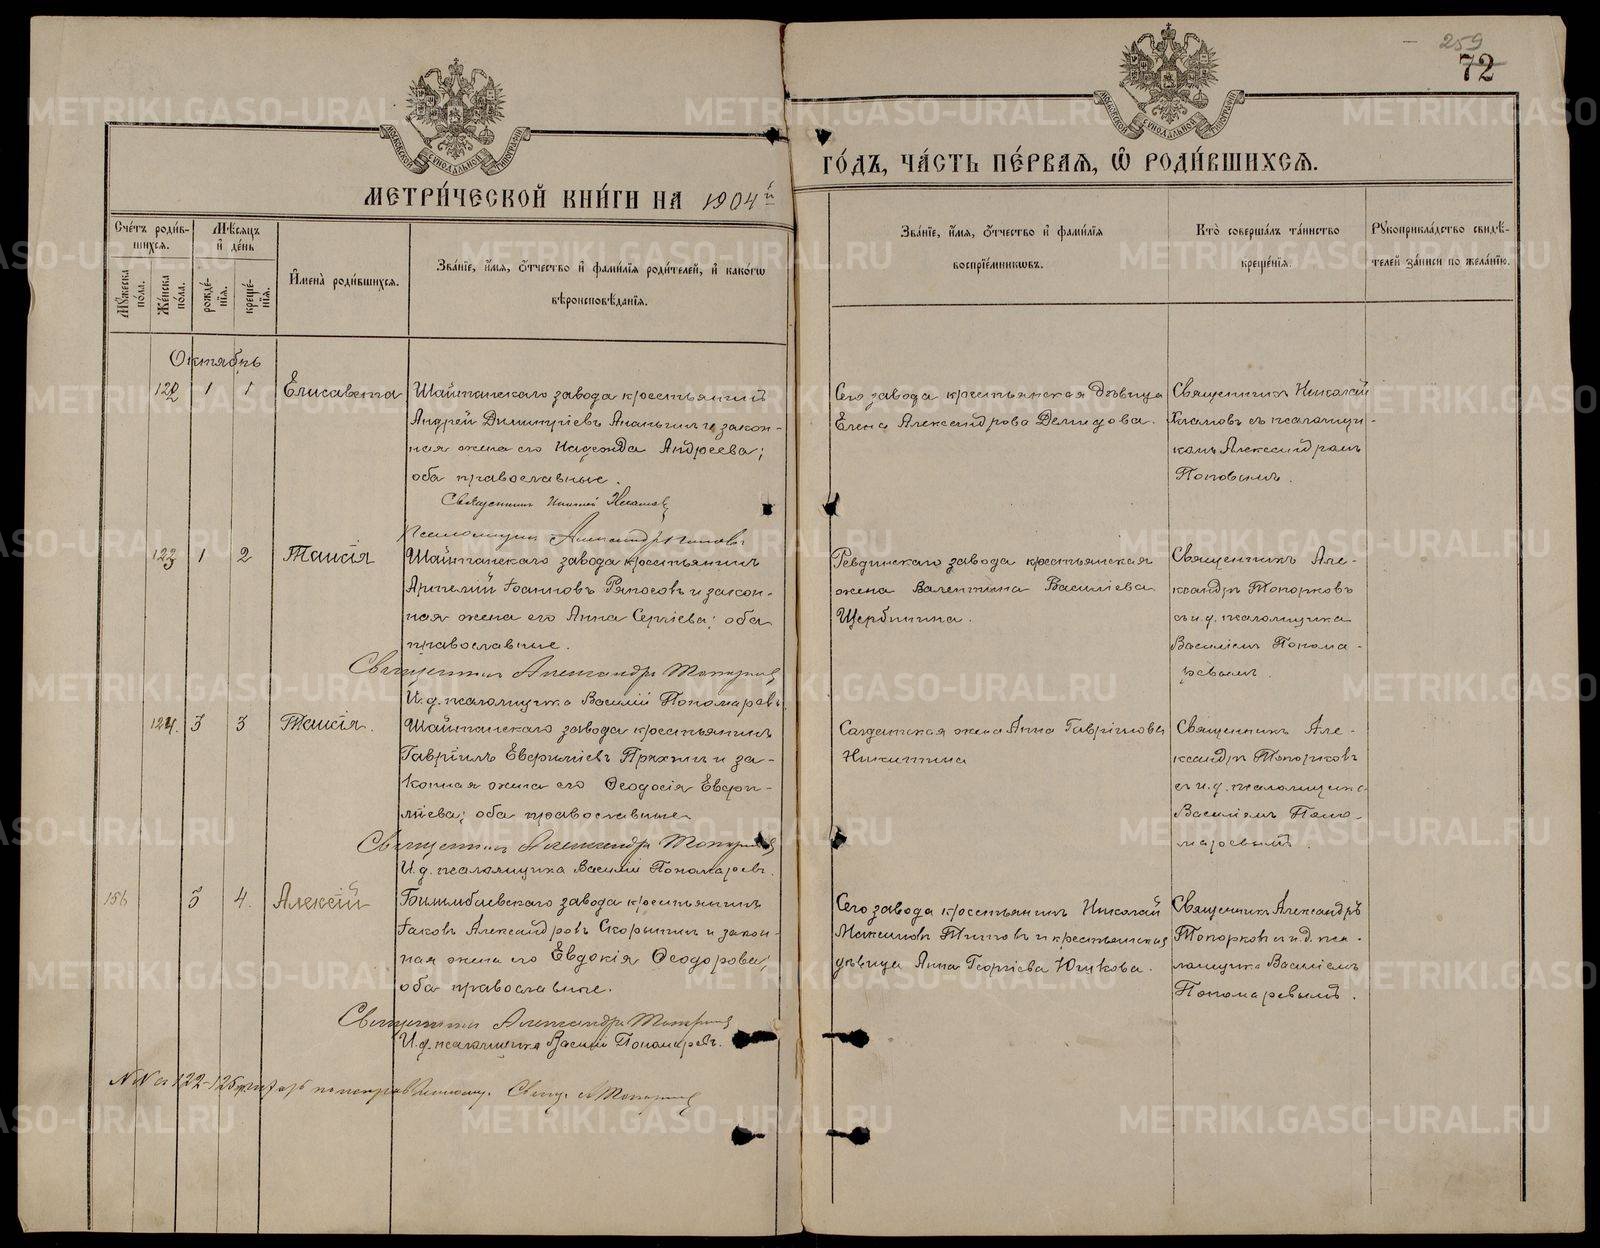 259
72
МЕТРИ́ЧЕСКОЙ КНИ́ГИ НА 1904й
ГО́ДЪ, ЧА́СТЬ ПЕ́РВАЯ, Ѡ РОДИ́ВШИХСѦ.
Сче́тъ роди́в-
шихся.
Му́жеска
по́ла.
Же́нска
пола.
Мѣ́сяцъ
и҆ де́нь
рожде́-
нїя.
креще́-
нїя.
И҆мена̀ роди́вшихся.
Зва́нїе, и҆́мя, ѻ҆́тчество и҆ фами́лїя роди́телей, и҆ како́гѡ
вѣроисповѣ́данїя.
Зва́нїе, и҆́мя, ѻ҆́тчество и҆ фами́лїя
воспрїе́мникѡвъ.
Кто̀ соверша́лъ та́инство
креще́нїя.
Рꙋкоприкла́дство свидѣ́-
телей за́писи по жела́нїю.
Октябрь
122 1 1 Елисавета
Шайтанскаго завода крестьянинъ
Андрей Димитріевъ Ананьинъ и закон-
ная жена его Надежда Андреева;
оба православные.
Священникъ Николай
Псаломщикъ Александръ Поповъ
Сего завода крестьянская дѣвица
Елена Александрова Демидова.
Священникъ Николай
съ псаломщи-
комъ Александромъ
Поповымъ.
123 1 2 Таисія
Шайтанскаго завода крестьянинъ
Іоанновъ Ряпосовъ и закон-
ная жена его Анна Сергіева; оба
православные.
Священникъ Александръ Топорковъ
И. д. псаломщика Василій Пономаревъ
Ревдинскаго завода крестьянская
жена Валентина Васильева
Щербинина.
Священникъ Але-
ксандръ Топорковъ
съ и. д. псаломщика
Василіемъ Понома-
ревымъ.
124. 3 3 Таисія.
Шайтанскаго завода крестьянинъ
Гавріилъ Евфиміевъ Пряхинъ и за-
конная жена его Ѳеодосія
оба православные
Священникъ Александръ Топорковъ
И. д. псаломщика Василій Пономаревъ.
Солдатская жена Анна Гавріилова
Никитина
Священникъ Але-
ксандръ Топорковъ
съ и. д. псаломщика
Василіемъ Поно-
маревымъ.
156 3 4. Алексій
Билимбаевскаго завода крестьянинъ
Іаковъ Александровъ Скорынинъ и закон-
ная жена его Евдокія Ѳеодорова;
оба православные.
Священникъ Александръ Топорковъ
И. д. псаломщика Василій Пономаревъ.
Сего завода крестьянинъ Николай
Максимовъ Титовъ и крестьянская
дѣвица Анна Георгіева Юшкова.
Священникъ Александръ
Топорковъ съ и. д. пса-
ломщика Василіемъ
Пономаревымъ.
122-125 читать по исправленному. Свящ. А Топорковъ
METRIKI.GASO-URAL.RU